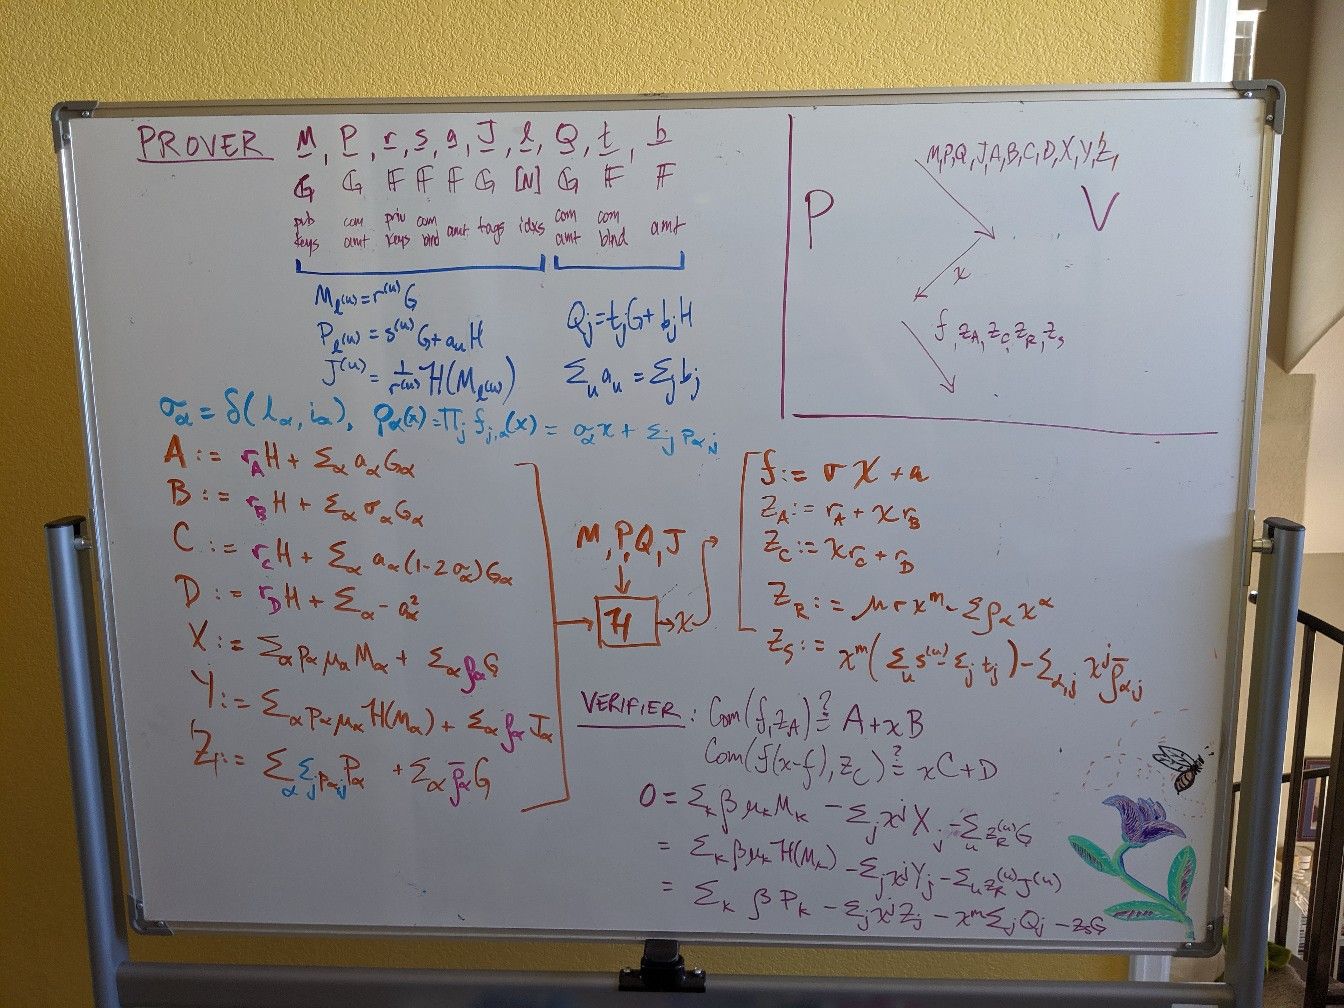 PROVER M, P, r, s, a, J, l, Q, t, b
𝔾 𝔾 𝔽 𝔽 𝔽 𝔾 [N] 𝔾 𝔽 𝔽
pub keys com amt priv keys com blnd amt tags idxs com amt com blnd amt
M_{l^{(u)}} = r^{(u)}G
P_{l^{(u)}} = s^{(u)}G + a_u H
J^{(u)} = 1/r^{(u)} H(M_{l^{(u)}})
Q_j = t_j G + b_j H
Σ_u a_u = Σ_j b_j
σ_α = δ(l_α, i_α), ρ_α(x) = Π_j f_{j,α}(x) = σ_α x + Σ_j p_{α,j}
A := r_A H + Σ_α a_α G_α
B := r_B H + Σ_α σ_α G_α
C := r_C H + Σ_α a_α(1-2σ_α)G_α
D := r_D H + Σ_α - a_α^2
X := Σ_α p_α μ_α M_α + Σ_α ρ_α G
Y := Σ_α p_α μ_α H(M_α) + Σ_α ρ_α J_α
Z := Σ_α Σ_j p_{α,j} P_α + Σ_α ρ̄_α G
M, P, Q, J
H → x
f := σ x + a
z_A := r_A + x r_B
z_C := x r_C + r_D
z_R := μ r x^m - Σ ρ_α x^α
z_S := x^m(Σ_u s^{(u)} - Σ_j t_j) - Σ_{α,j} x^j ρ̄_{α,j}
VERIFIER: Com(f, z_A) ?= A + xB
Com(f(x-f), z_C) ?= xC + D
0 = Σ_k β μ_k M_k - Σ_j x^j X_j - Σ_u z_R^{(u)} G
= Σ_k β μ_k H(M_k) - Σ_j x^j Y_j - Σ_u z_R^{(u)} J^{(u)}
= Σ_k β P_k - Σ_j x^j Z_j - x^m Σ_j Q_j - z_S G
M,P,Q, J,A,B,C,D,X,Y,Z,
P V
x
f, z_A, z_C, z_R, z_S